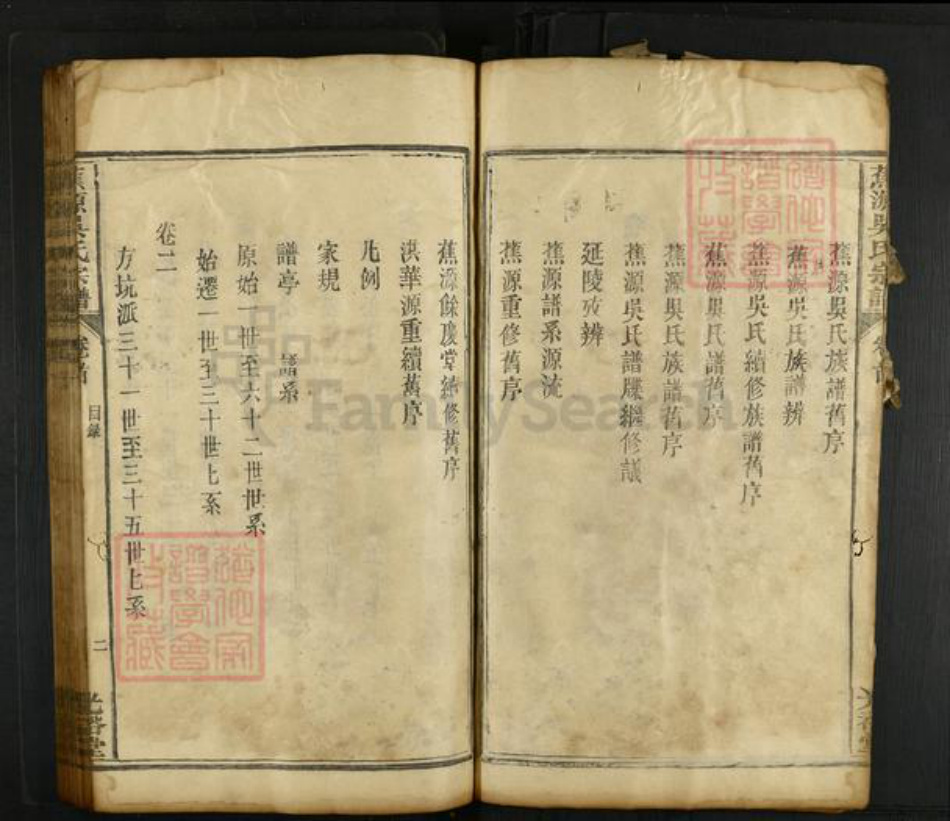 蕉源吳氏宗譜 卷首
蕉源吳氏族譜舊序
蕉源吳氏族譜辨
蕉源吳氏續修族譜舊序
蕉源吳氏譜舊序
蕉源吳氏族譜舊序
蕉源吳氏譜牒繼修議
延陵攷辨
蕉源譜系源流
蕉源重修舊序
蕉源餘慶堂續修舊序
洪華源重續舊序
凡例
家規
譜亭 譜系
原始一世至六十二世世系
始遷一世至三十世世系
卷二
方坑派三十一世至三十五世世系
蕉源吳氏宗譜 卷首 目錄 二
FamilySearch